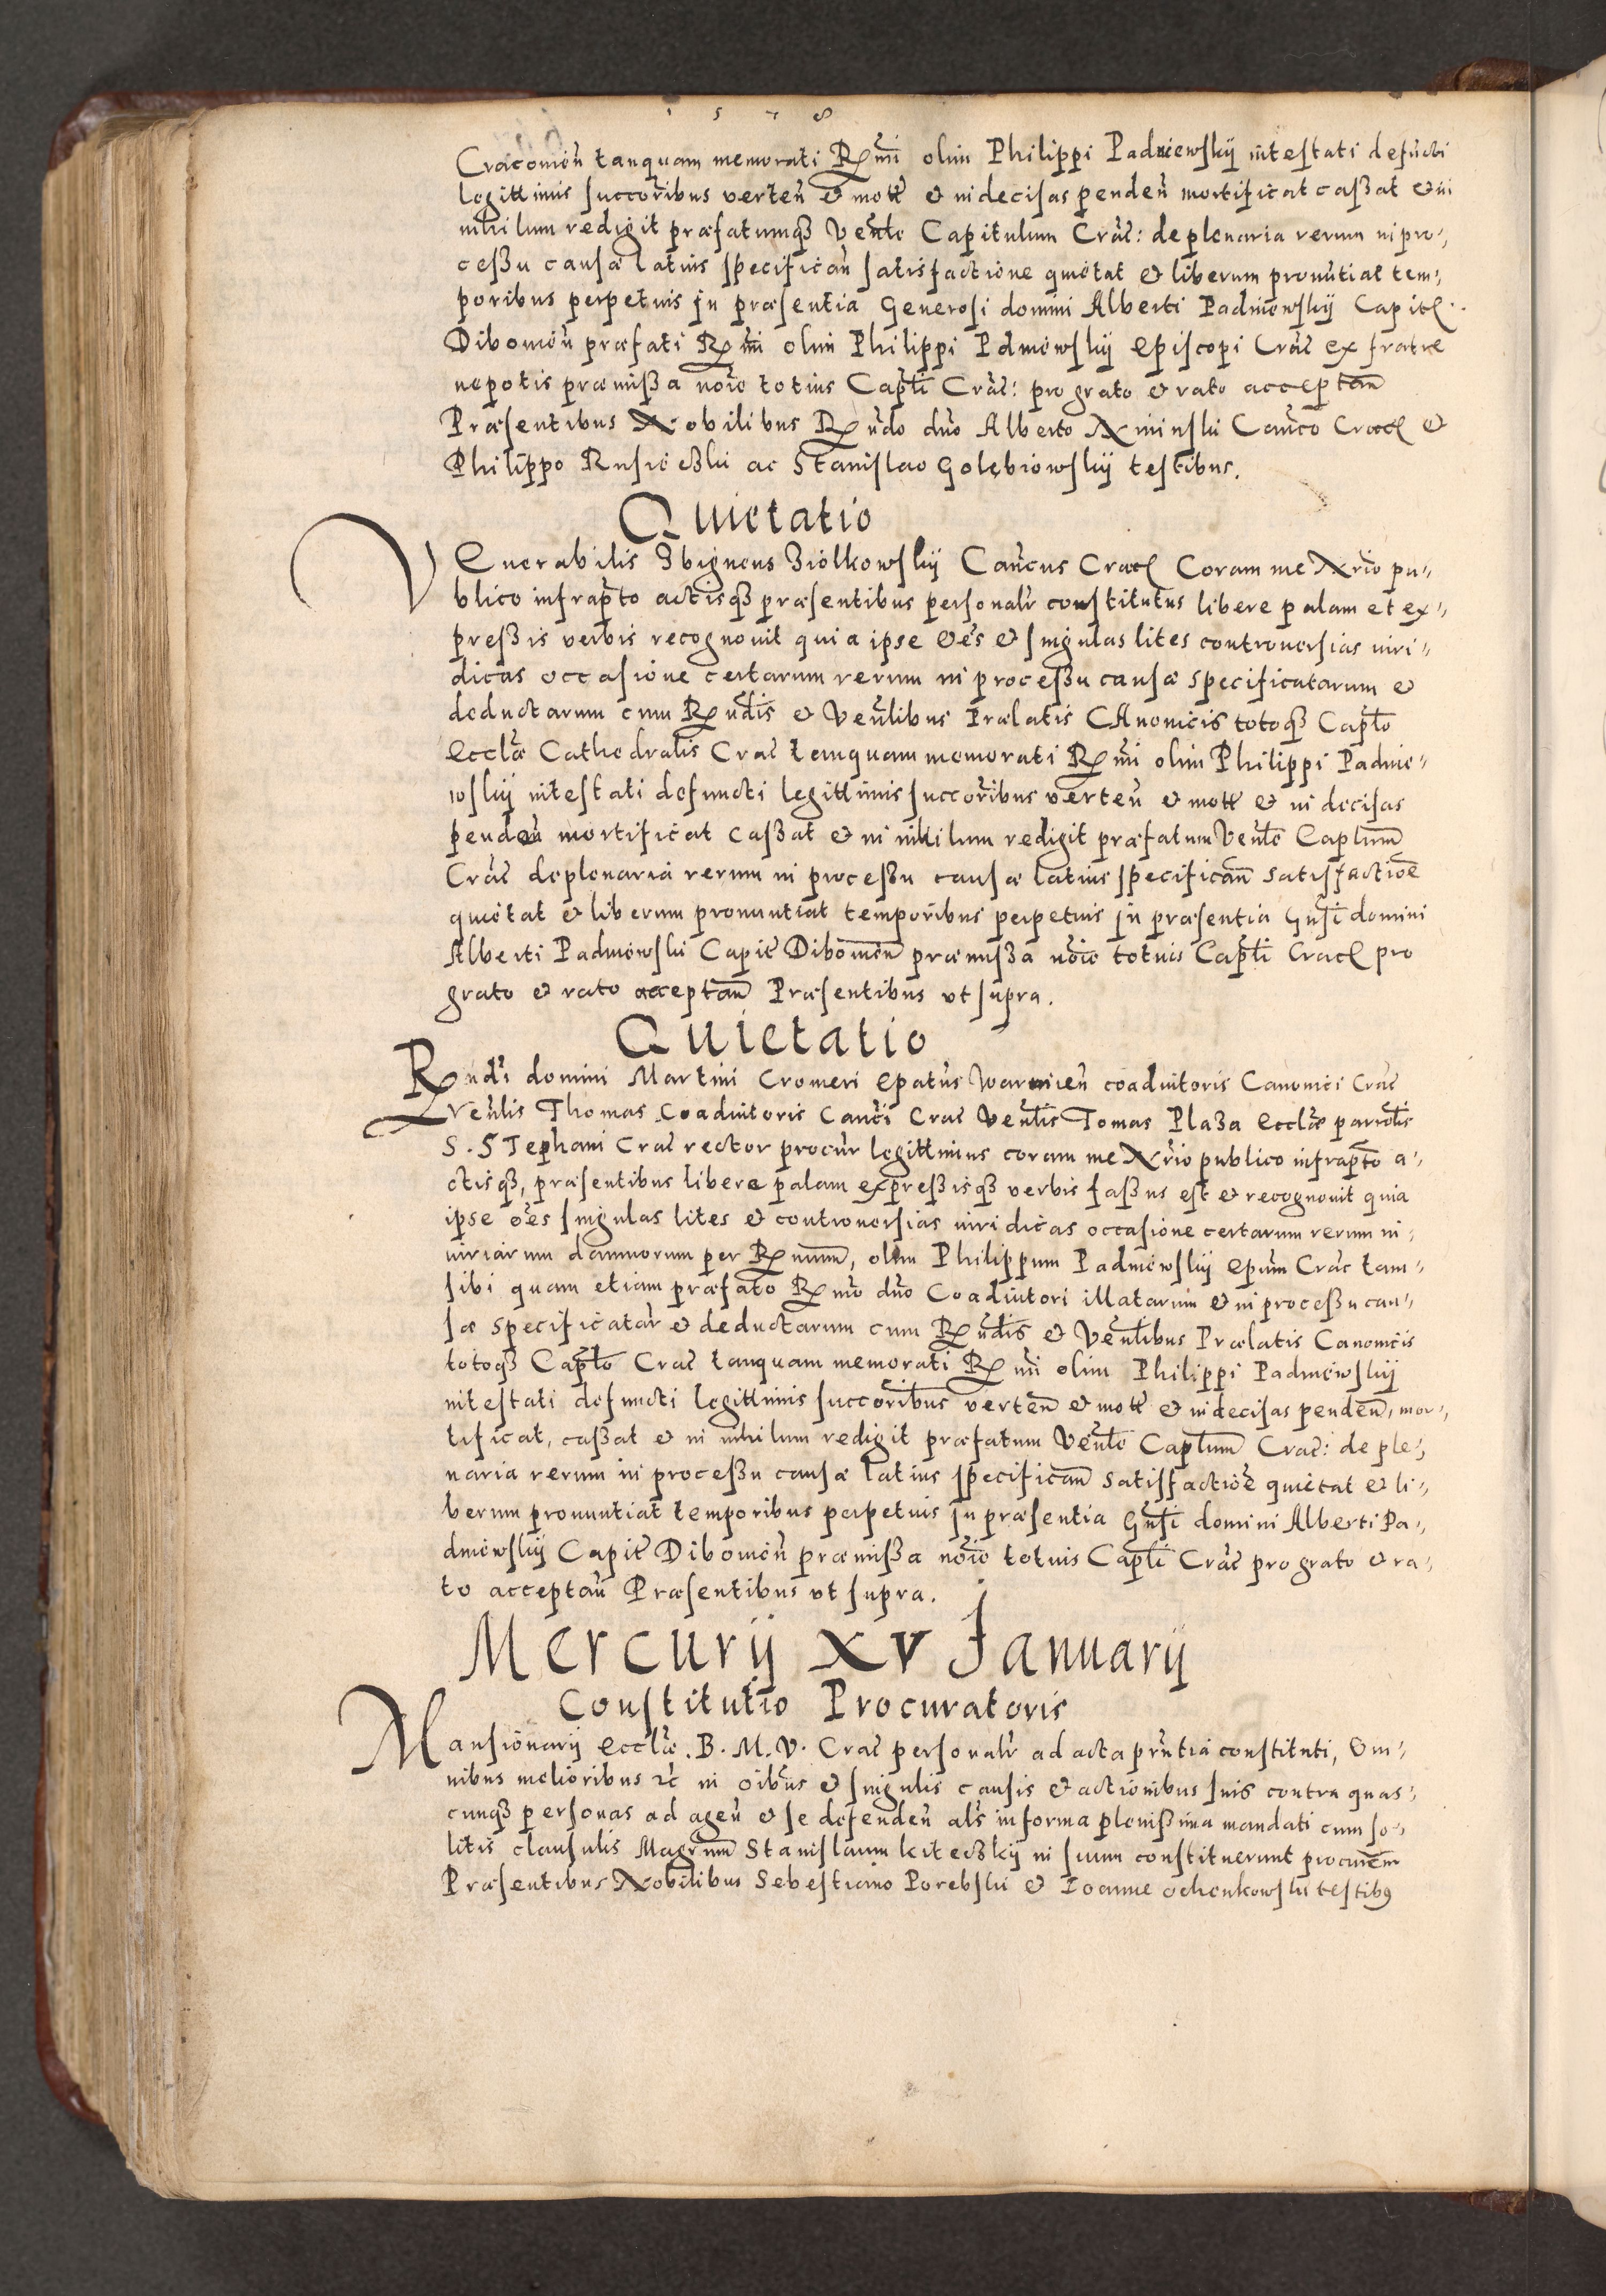 1578
Cracovień tanquam memorati Rmi olim Philippi Padniewskij intestati defuncti
legittimis succoribus verteñ & mott & indecisas pendeñ mortificat cassat & in
nihilum redigit præfatumqȝ Venle Capitulum Crac: de plenaria rerum in pro-
cessu causæ latius specificañ satisfactione quietat & liberum pronuntiat tem-
poribus perpetuis in præsentia Generosi domini Alberti Padniewskij Capit.
Dibowień præfati Rmi olim Philippi Pdniewskij episcopi Crac ex fratre
nepotis præmissa noie totius Capli Crac: pro grato & rato acceptañ
Præsentibus Nobilibus Rndo dno Alberto Xninski Canco Crac &
Philippo Rusieczki ac Stanislao Golębiowskij testibus.
Quietatio
Venerabilis Zbigneus Ziolkowskij Cancus Crac Coram me Nrio pu-
blico infrapto actisqȝ præsentibus personalr constitutus libere palam et ex-
pressis verbis recognovit quia ipse oes & singulas lites controversias iuri-
dicas occasione certarum rerum in processu causæ specificatarum &
deductarum cum Rndis & Venlibus Prælatis CAnonicis totoqȝ Caplo
Ecclæ Cathedralis Crac tanquam memorati Rmi olim Philippi Padnie-
wskij intestati defuncti legittimis succoribus verteñ & mott & indecisas
pendeñ mortificat cassat & in nihilum redigit præfatum Venle Caplum
Crac de plenaria rerum in processu causæ latius specificañ satisfactioē
quietat & liberum pronuntiat temporibus perpetuis in præsentia Gnsi domini
Alberti Padniewski Capit Dibowień præmissa noie totius Capli Crac pro
grato & rato acceptañ Præsentibus ut supra.
Quietatio
Rndi domini Martini Cromeri Epatus Warmień coadiutoris Canonici Crac
Venlis Thomas Coadiutoris Canci Crac Venlis Tomas Plaza Ecclæ pariolis
S. STephani Crac rector procur legittimus coram me Nrio publico infrapto a-
ctisqȝ, præsentibus libere palam expressisqȝ verbis fassus est & recognovit quia
ipse oes singulas lites & controversias iuridicas occasione certarum rerum in-
iuriarum damnorum per Rmum, olim Philippum Padniewskij epum Crac tam-
sibi quam etiam præfato Rmo dno Coadiutori illatarum & in processu cau-
sæ specificatar & deductarum cum Rndis & Venlibus Prælatis Canonicis
totoqȝ Caplo Crac tanquam memorati Rmi olim Philippi Padniewskij
intestati defuncti legittimis succoribus verteñ & mott & indecisas pendeñ, mor-
tificat, cassat & in nihilum redigit præfatum Venle Caplum Crac: de ple-
naria rerum in processu causæ latius specificañ satisfactioē quietat & li-
berum pronuntiat temporibus perpetuis in præsentia Gnsi domini Alberti Pa-
dniewskij Capit Dibowień præmissa noie totius Capli Crac pro grato & ra-
to acceptañ Præsentibus ut supra.
Mercurij XV Januarij
Constitutio Procuratoris
Mansionarij Ecclæ. B. M. V. Crac personalr ad acta prntia constituti, Om-
nibus melioribus &c in oibus & singulis causis & actionibus suis contra quas-
cunqȝ personas ad ageñ & se defendeñ als in forma plenissima mandati cum so-
litis clausulis Magrum Stanislaum kiteczkij in suum constituerunt procurem
Præsentibus Nobilibus Sebestiano Porebski & Ioanne ochenkowski testibꝰ